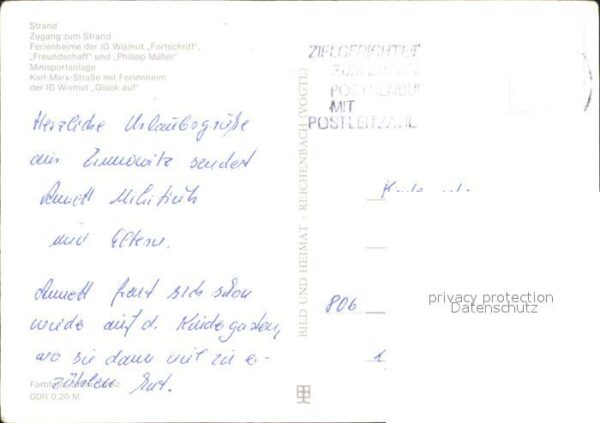 Strand
Zugang zum Strand
Ferienheime der IG Wismut „Fortschritt",
„Freundschaft" und „Philipp Müller"
Minisportanlage
Karl-Marx-Straße mit Ferienheim
der IG Wismut „Glück auf"
ZIELGERICHTET
POSTSENDUN
MIT
POSTLEITZAHL
Herzliche Urlaubsgrüße
aus Zinnowitz sendet
Annett
und Eltern.
Annett freut sich schon
wieder auf d. Kindergarten,
wo sie dann viel zu er-
zählen hat.
BILD UND HEIMAT · REICHENBACH (VOGTL)
806
1
privacy protection
Datenschutz
DDR 0,20 M